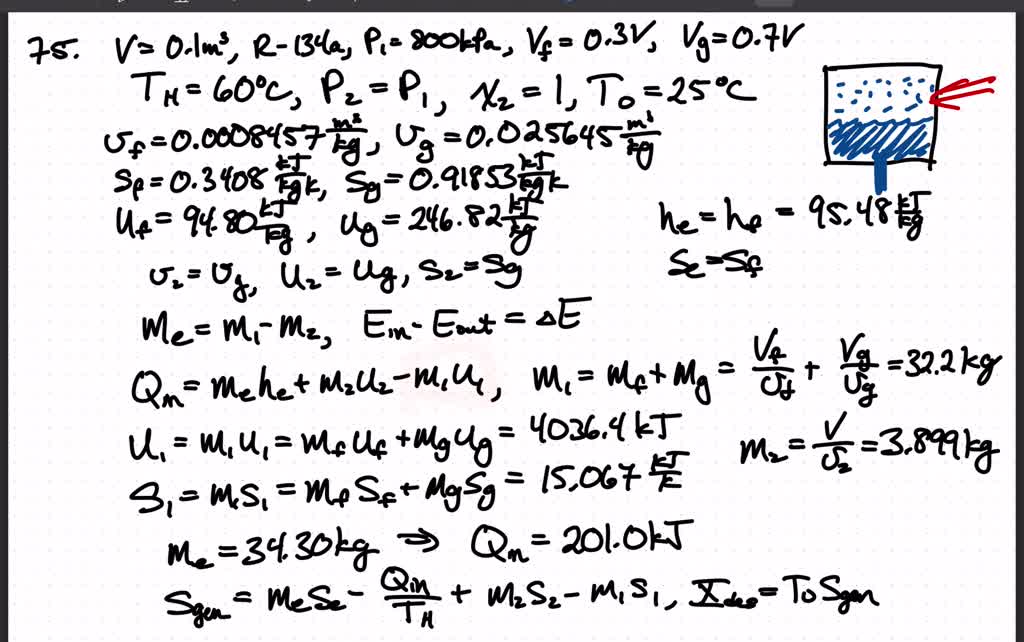 75. V=0.1m³, R-134a, P₁=800kPa, V_f=0.3V, V_g=0.7V
T_H=60°C, P₂=P₁, x₂=1, T₀=25°C
υ_f=0.0008457 m³/kg, υ_g=0.025645 m³/kg
S_f=0.3408 kJ/kgK, S_g=0.91853 kJ/kgK
U_f=94.80 kJ/kg, u_g=246.82 kJ/kg
h_e=h_f=95.48 kJ/kg
υ₂=υ_g, U₂=U_g, S₂=S_g
S_e=S_f
m_e=m₁-m₂, E_in-E_out=ΔE
Q_in=m_e h_e+m₂U₂-m₁U₁, m₁=m_f+m_g=V_f/υ_f+V_g/υ_g=32.2kg
U₁=m₁u₁=m_f u_f+m_g u_g=4036.4kJ
m₂=V/υ₂=3.899kg
S₁=m₁s₁=m_f S_f+m_g S_g=15.067 kJ/K
m_e=34.30kg ⇒ Q_in=201.0kJ
S_gen=m_e S_e-Q_in/T_H+m₂S₂-m₁S₁, X_des=T₀S_gen